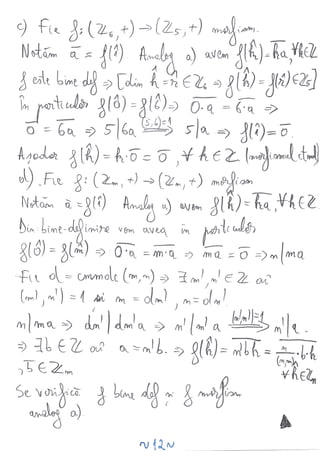 c) Fie f: (ℤ₆, +) → (ℤ₅, +) morfism.
Notăm ā = f(1̂) Analog a) avem f(ĥ) = \overline{ha}, ∀h∈ℤ
f este bine def ⇒ [din ĥ = r̂ ∈ ℤ₆ ⇒ f(ĥ) = f(r̂) ∈ ℤ₅]
În particular f(0̂) = f(6̂) ⇒ \overline{0·a} = \overline{6·a} ⇒
\overline{0} = \overline{6a} ⇒ 5|6a (5,6)=1 ⇒ 5|a ⇒ f(1̂) = \overline{0}.
Așadar f(ĥ) = \overline{h·0} = \overline{0}, ∀ h∈ℤ (morfismul
d). Fie f: (ℤₘ, +) → (ℤₙ, +) morfism
Notăm ā = f(1̂) Analog a) avem f(ĥ) = \overline{ha}, ∀h∈ℤ
Din bine-definire vom avea în particular
f(0̂) = f(m̂) ⇒ \overline{0·a} = \overline{m·a} ⇒ \overline{ma} = \overline{0} ⇒ n|ma
Fie d = cmmdc (m,n) ⇒ ∃ m', n' ∈ ℤ aî
(m', n') = 1 și m = dm', n = dn'
n|ma ⇒ dn' | dm'a ⇒ n' | m'a (m',n')=1 ⇒ n'|a.
⇒ ∃b ∈ ℤ aî a = n'b. ⇒ f(ĥ) = \overline{n'bh} = \overline{\frac{n}{(m,n)}·b·h}
, \overline{b} ∈ ℤₘ ∀ĥ∈ℤₘ
Se verifică f bine def și f morfism
analog a)
~12~